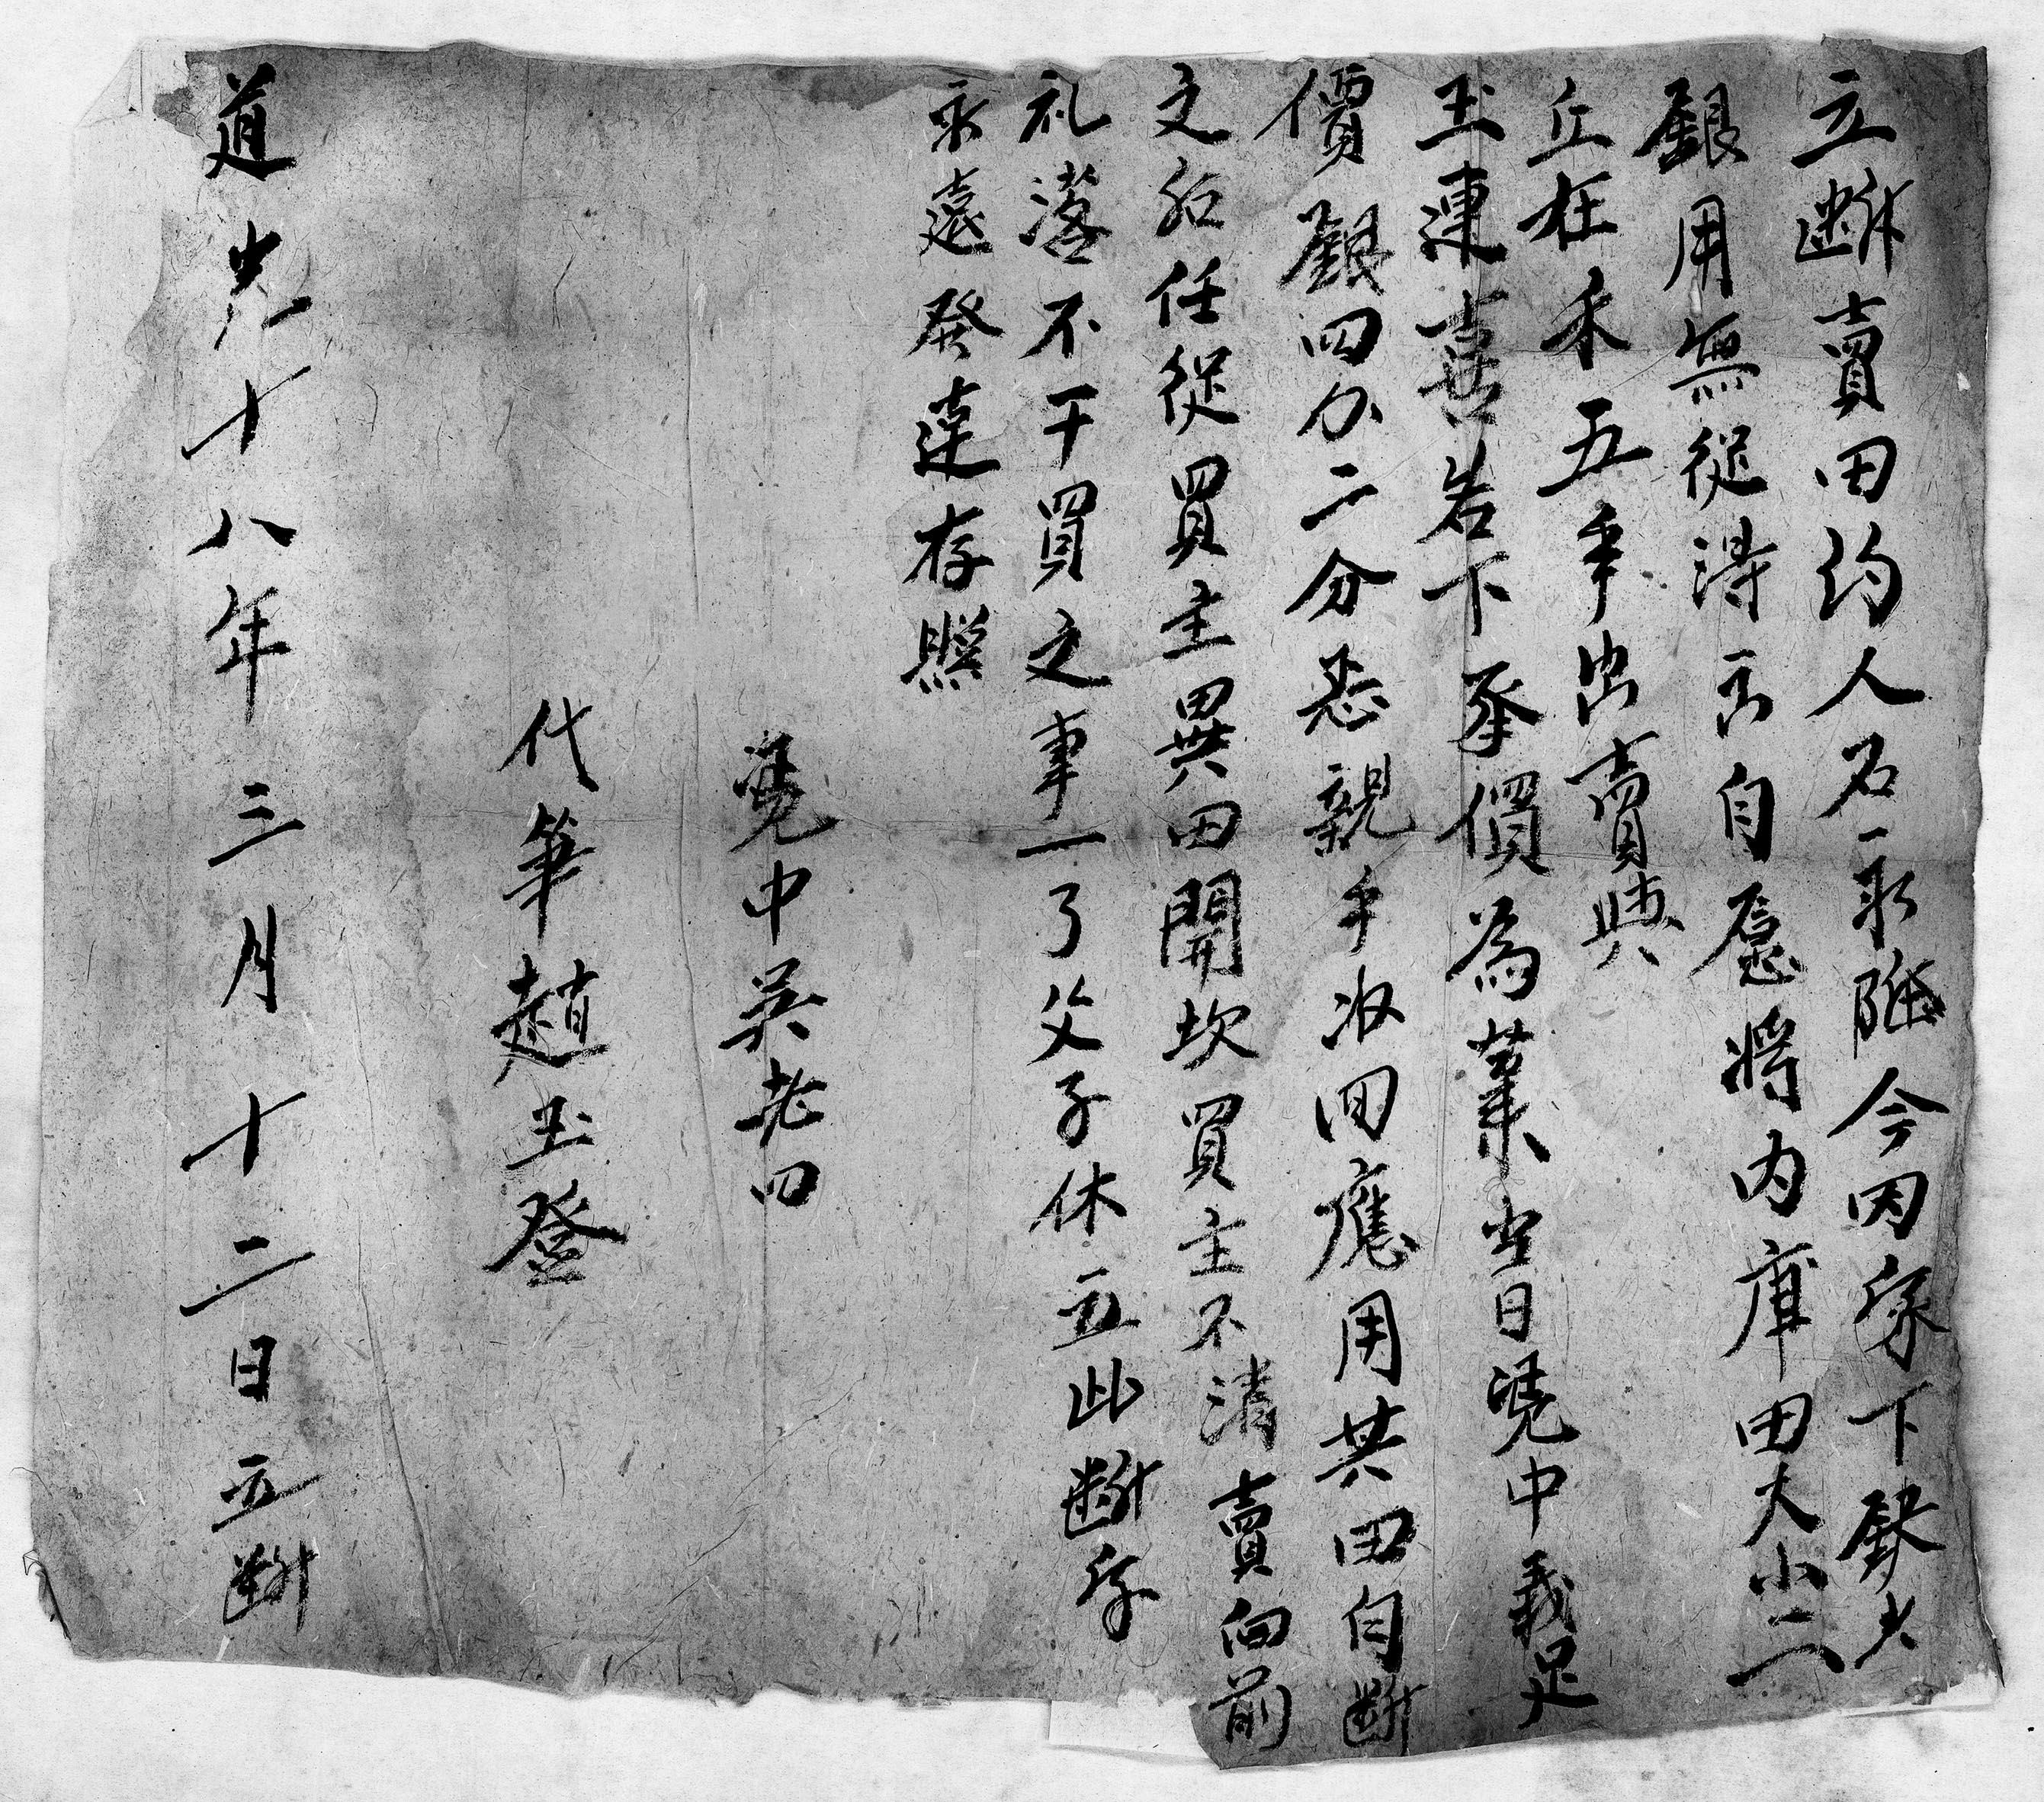 立断賣田約人石一承䧟今因家下缺少
銀用無從淂言自愿將内庫田大小二
丘在禾五手出賣與
玉連喜岩下承價為業當日凴中議足
價銀四分二分忝親手收回應用其田自断
之後任從買主畊田開坎買主不清賣向前
礼落不干買之事一了父子休立此断存
永遠發達存照
凴中吳老四
代筆趙玉登
道光十八年三月十二日立断